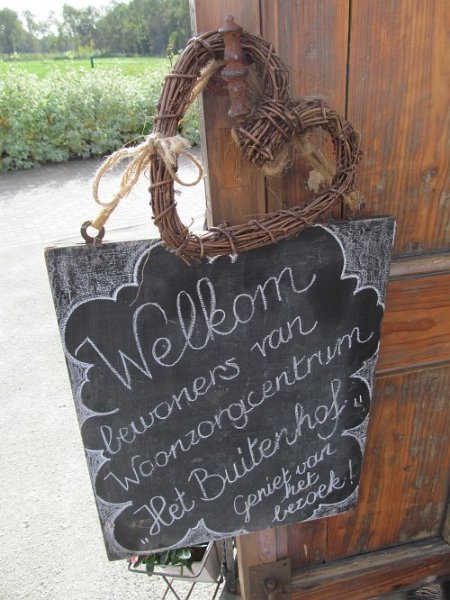 Welkom
bewoners van
Woonzorgcentrum
"Het Buitenhof."
Geniet van
het
bezoek!